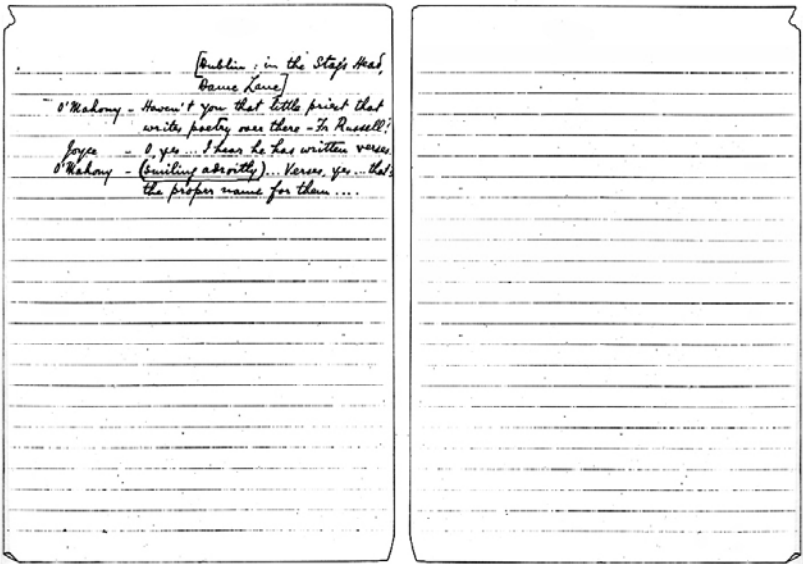 [Dublin : in the Stag's Head,
Dame Lane]
O'Mahony – Haven't you that little priest that
writes poetry over there – Fr Russell?
Joyce – O, yes ... I hear he has written verses.
O'Mahony – (smiling adroitly) ... Verses, yes ... that's
the proper name for them ....